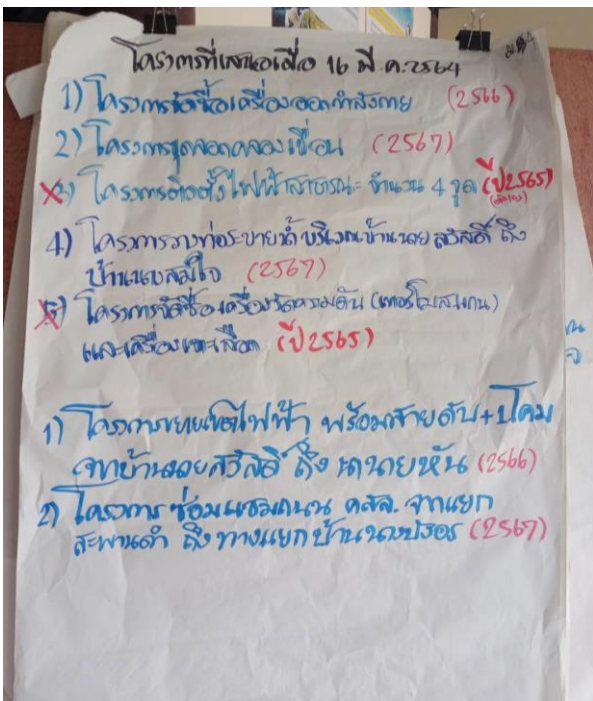 โครงการที่เสนอเมื่อ 16 มี.ค.2564
1) โครงการจัดซื้อเครื่องออกกำลังกาย (2566)
2) โครงการขุดลอกคลองเขื่อน (2567)
3) โครงการติดตั้งไฟฟ้าสาธารณะ จำนวน 4 จุด (ปี2565)
4) โครงการวางท่อระบายน้ำบริเวณบ้านนายสวัสดิ์ ถึง
บ้านนางสมใจ (2567)
5) โครงการจัดซื้อเครื่องวัดความดัน (เทอร์โมสแกน)
และเครื่องเจาะเลือด (ปี2565)
1) โครงการขยายเขตไฟฟ้า พร้อมสายดับ+โคม
จากบ้านนายสวัสดิ์ ถึง นายหัน (2566)
2) โครงการ ซ่อมแซมถนน คสล. จากแยก
สะพานดำ ถึง ทางแยกบ้านนางบังอร (2567)